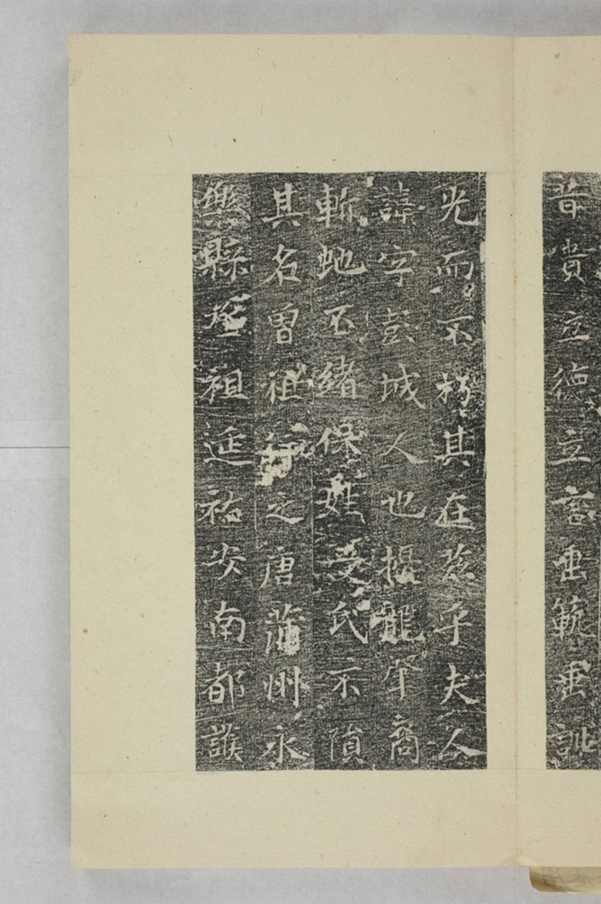 昔貴立德立言垂範垂訓
光而不朽其在茲乎夫人
諱字彭城人也擾龍肇裔
斬虵丕緒保姓受氏不隕
其名曾祖行之唐蒲州永
樂縣丞祖延祐安南都護